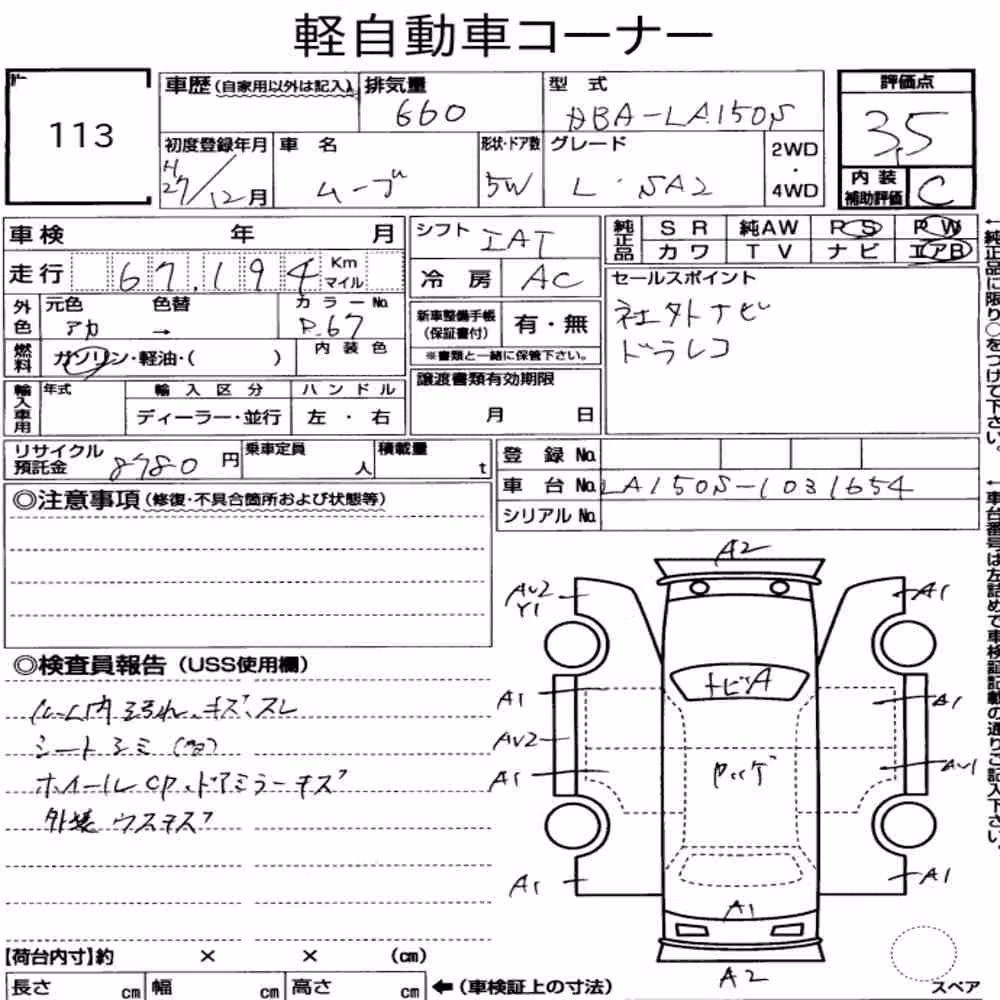 軽自動車コーナー
113
車歴(自家用以外は記入)
排気量
660
型 式
DBA-LA150S
評価点
3.5
内装
補助評価
C
初度登録年月
H
27/12月
車 名
ムーブ
形状・ドア数
5W
グレード
L・SA2
2WD
・
4WD
車検 年 月
走行 67,194 Km
マイル
シフト IAT
冷 房 AC
純正品
S R 純AW R S P W
カワ T V ナビ エアB
セールスポイント
社外ナビ
ドラレコ
外色
元色 色替 カラーNo.
アカ → P.67
燃料
ガソリン・軽油・( )
内装色
新車整備手帳
(保証書付)
有・無
※書類と一緒に保管下さい。
輸入車用
年式
輸入区分
ハンドル
ディーラー・並行
左・右
譲渡書類有効期限
月 日
リサイクル
預託金
8780 円
乗車定員
人
積載量
t
登録 No.
車台 No. LA150S-1031654
シリアル No.
◎注意事項(修復・不具合箇所および状態等)
◎検査員報告(USS使用欄)
ルーム内ヨゴれ、キズ、スレ
シートシミ
ホイールCP、ドアミラーキズ
外装ウスキズ
A2
AV2
Y1
A1
A1
トビA
A1
AV2
A1
ヤッゲ
AV1
A1
A1
A1
A2
【荷台内寸】約 × × (cm)
長さ cm 幅 cm 高さ cm ←(車検証上の寸法)
スペア
←純正品に限り○をつけて下さい。
←車台番号は左詰めで車検証記載の通りご記入下さい。